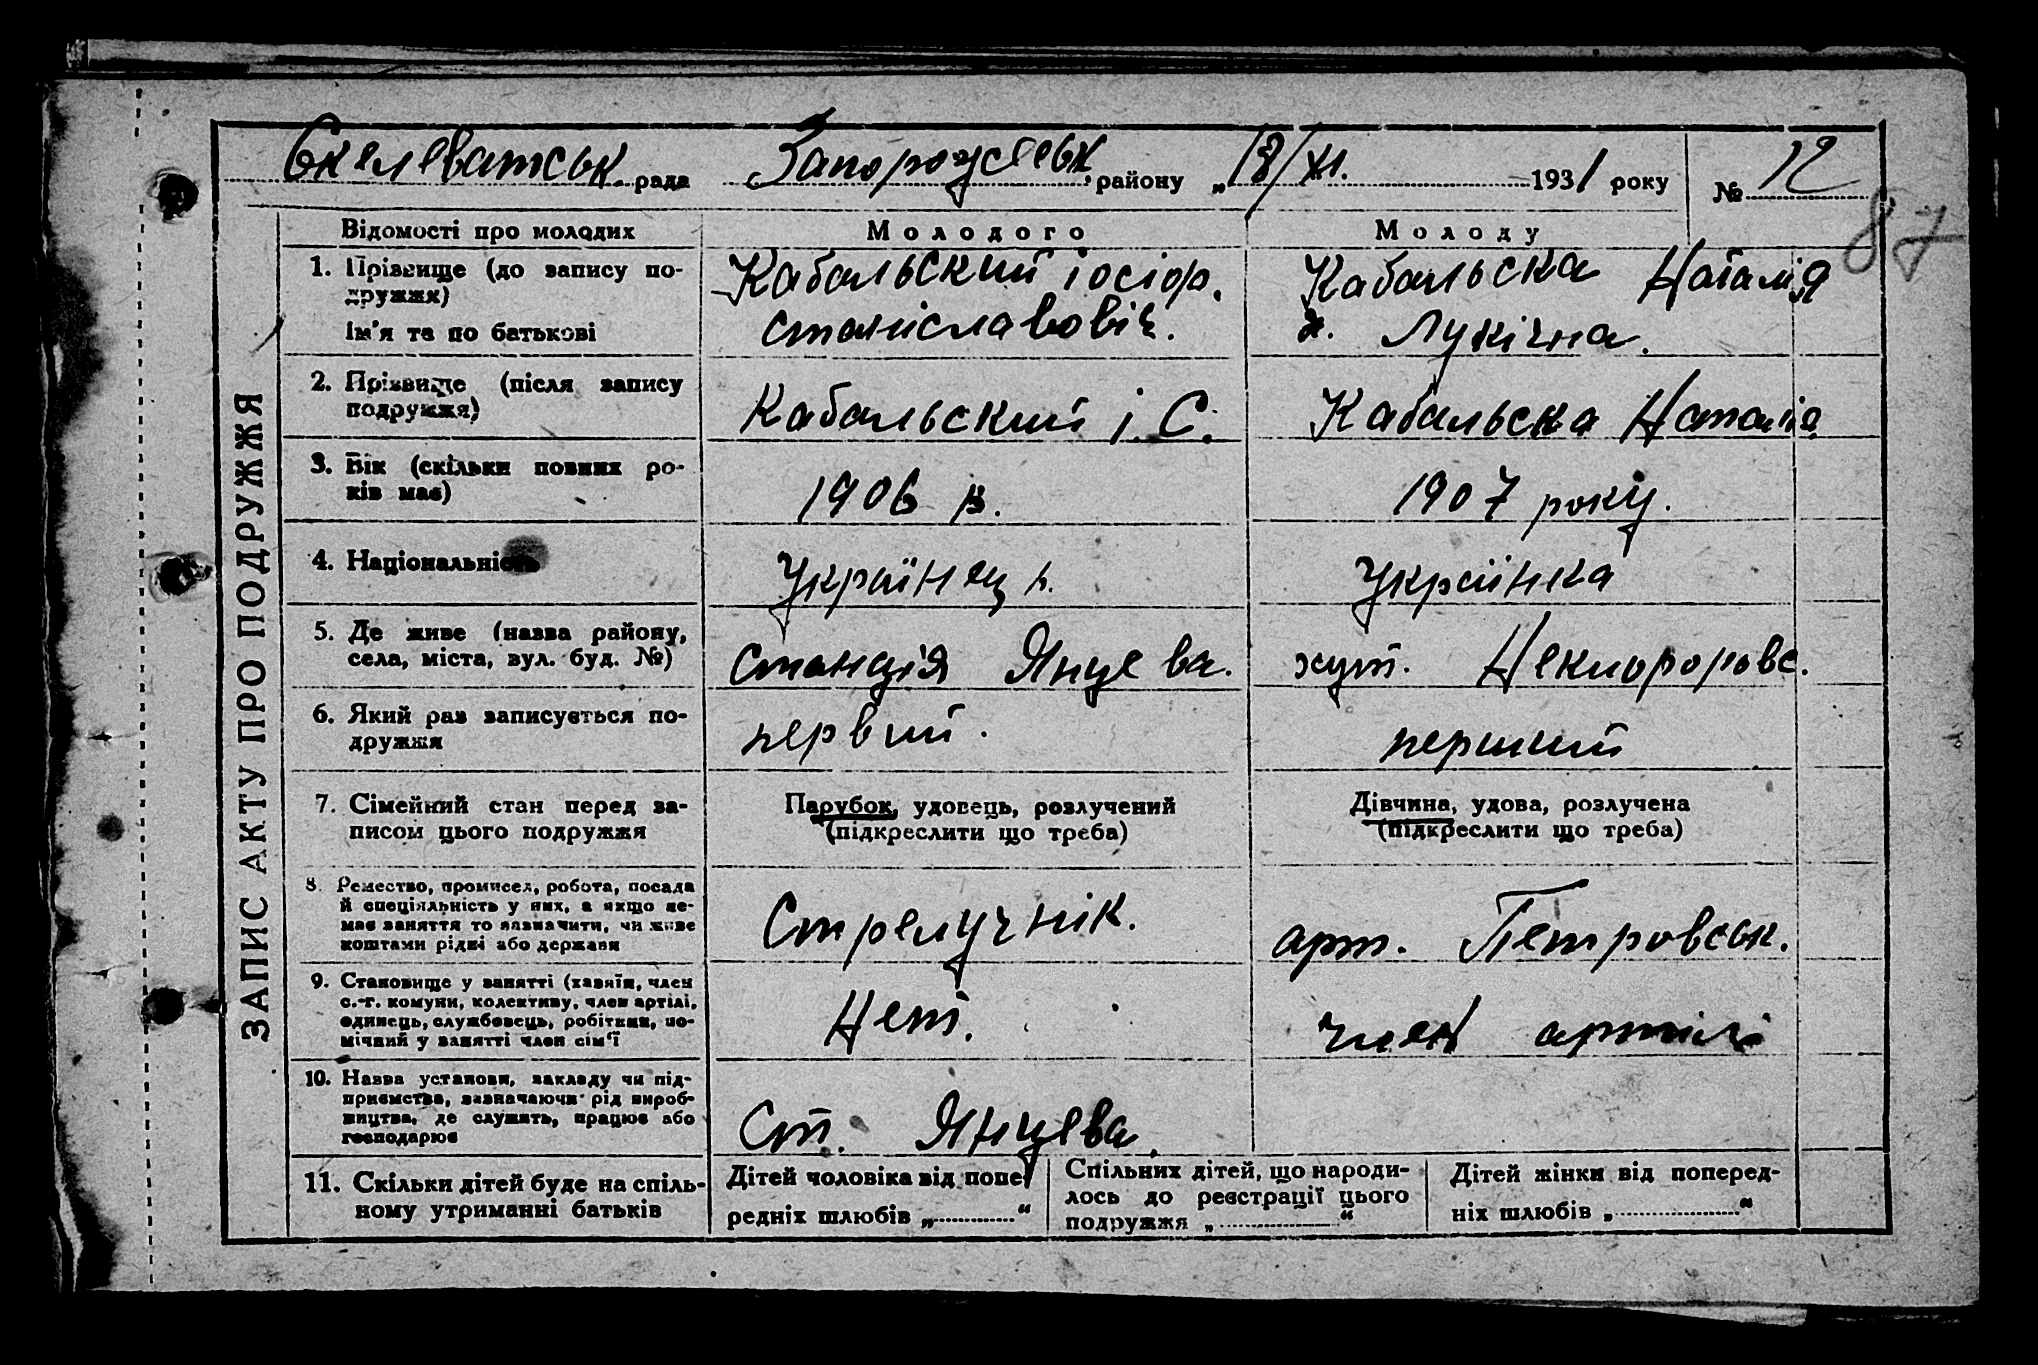 Скелеватськ. рада Запорожськ. району „18/XI. 1931 року № 12
87
ЗАПИС АКТУ ПРО ПОДРУЖЖЯ
Відомості про молодих Молодого Молоду
1. Прізвище (до запису по-
дружжя)
Ім'я та по батькові
Кабальський іосіф.
станіславовіч.
Кабальська Наталія
Лукічна.
2. Прізвище (після запису
подружжя)
Кабальский і. С.
Кабальска Наталія
3. Вік (скільки повних ро-
ків має)
1906 р.
1907 року.
4. Національність
Українец
Українка
5. Де живе (назва району,
села, міста, вул. буд. №)
станція Янцева.
хут.
6. Який раз записується по-
дружжя
первий.
перший
7. Сімейний стан перед за-
писом цього подружжя
Парубок, удовець, розлучений
(підкреслити що треба)
Дівчина, удова, розлучена
(підкреслити що треба)
8. Ремество, промисел, робота, посада
й спеціяльність у них, а якщо не-
має заняття то зазначити, чи живе
коштами рідні або держави
Стрелучнік.
арт. Петровськ.
9. Становище у занятті (хазяїн, член
с.-г. комуни, колективу, член артілі,
одинець, службовець, робітник, по-
мічний у занятті член сім'ї
Нет.
член артілі
10. Назва установи, закладу чи під-
приємства, зазначаючи рід вироб-
ництва, де служить, працює або
господарює
Ст. Янцева.
11. Скільки дітей буде на спіль-
ному утриманні батьків
Дітей чоловіка від попе-
редніх шлюбів „ “
Спільних дітей, що народи-
лось до реєстрації цього
подружжя „ “
Дітей жінки від поперед-
ніх шлюбів „ “